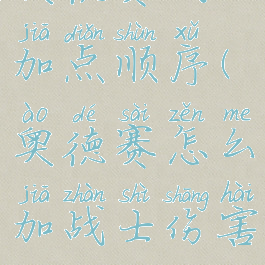 jiā diǎn shùn xù
加点顺序(
ào dé sài zěn me
奥德赛怎么
jiā zhàn shì shāng hài
加战士伤害